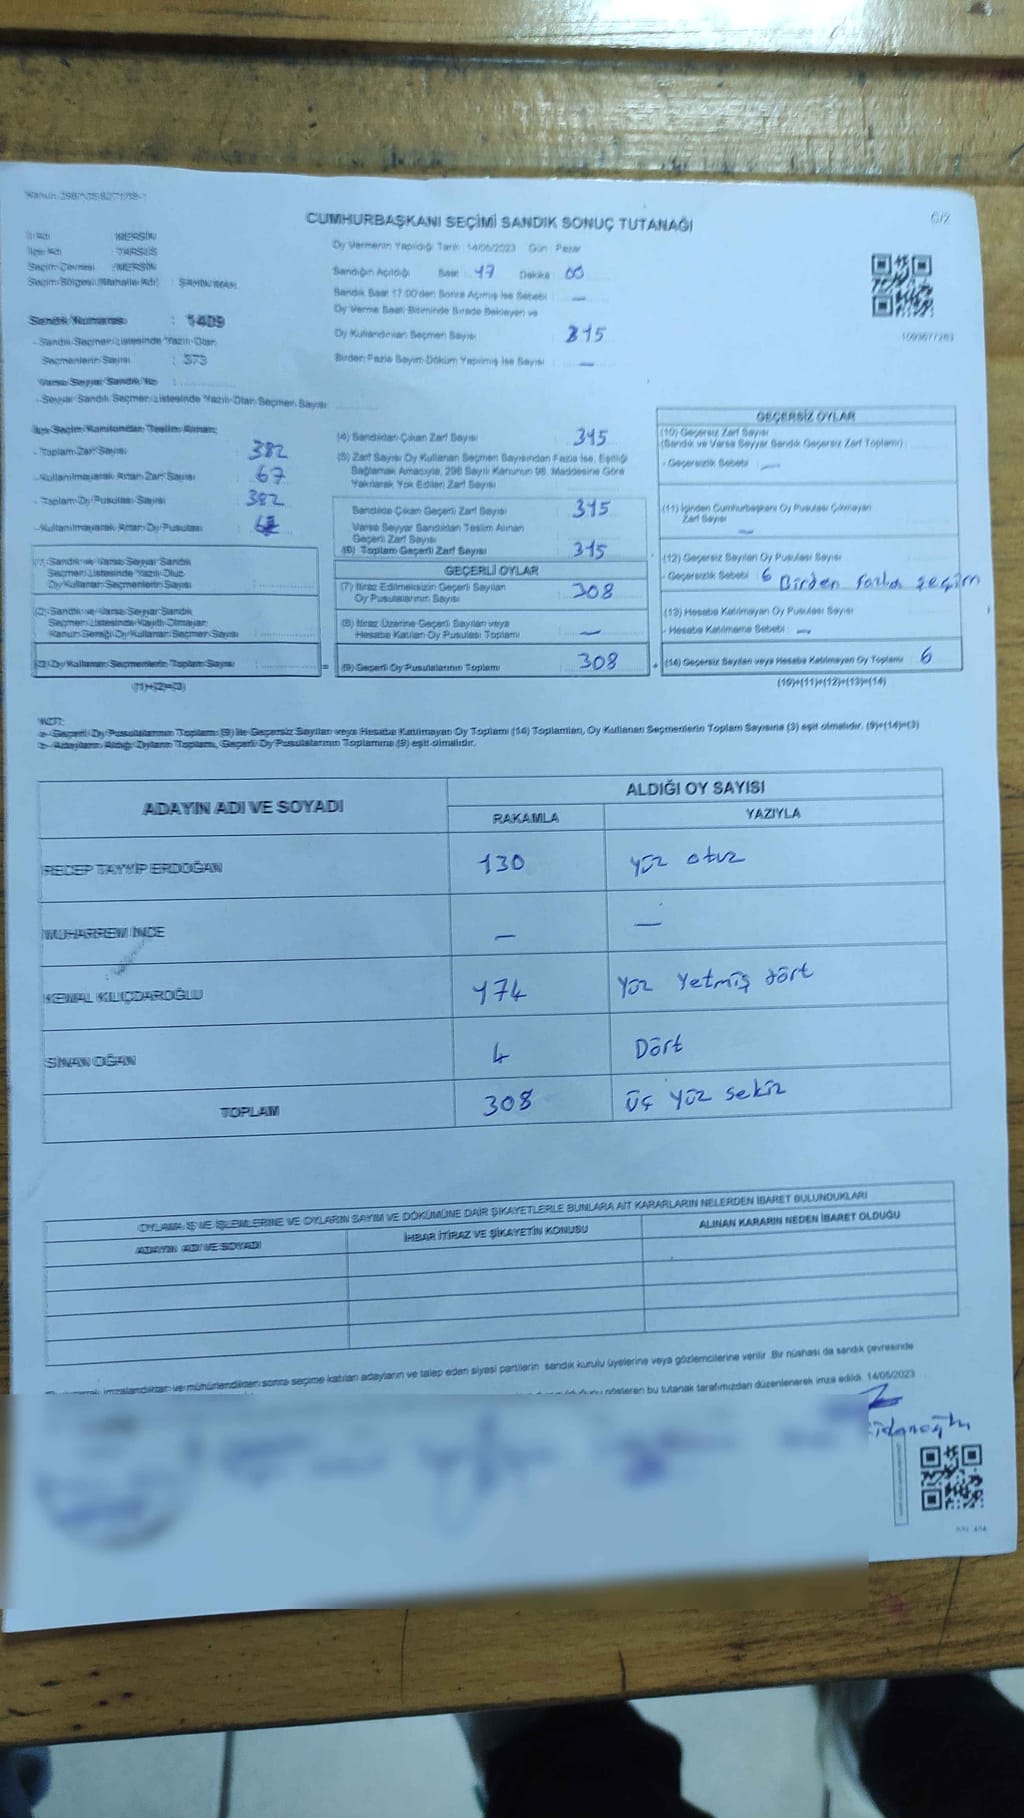 CUMHURBAŞKANI SEÇİMİ SANDIK SONUÇ TUTANAĞI
6/2
İl Adı : MERSİN
İlçe Adı : TARSUS
Seçim Çevresi : MERSİN
Seçim Bölgesi (Mahalle Adı) :
Sandık Numarası : 1409
- Sandık Seçmen Listesinde Yazılı Olan
Seçmenlerin Sayısı : 373
Varsa Seyyar Sandık No :
- Seyyar Sandık Seçmen Listesinde Yazılı Olan Seçmen Sayısı
Oy Vermenin Yapıldığı Tarih: 14/05/2023 Gün: Pazar
Sandığın Açıldığı Saat: 17 Dakika: 00
Sandık Saat 17:00'den Sonra Açılmış İse Sebebi : —
Oy Verme Saati Bitiminde Sırada Bekleyen ve
Oy Kullandırılan Seçmen Sayısı : 315
Birden Fazla Sayım Döküm Yapılmış İse Sayısı : —
İlçe Seçim Kurulundan Teslim Alınan;
- Toplam Zarf Sayısı : 382
- Kullanılmayarak Artan Zarf Sayısı : 67
- Toplam Oy Pusulası Sayısı : 382
- Kullanılmayarak Artan Oy Pusulası :
(1) Sandık ve Varsa Seyyar Sandık
Seçmen Listesinde Yazılı Olup
Oy Kullanan Seçmenlerin Sayısı
(2) Sandık ve Varsa Seyyar Sandık
Seçmen Listesinde Kayıtlı Olmayan
Kanun Gereği Oy Kullanan Seçmen Sayısı
(3) Oy Kullanan Seçmenlerin Toplam Sayısı
(1)+(2)=(3)
(4) Sandıktan Çıkan Zarf Sayısı : 315
(5) Zarf Sayısı Oy Kullanan Seçmen Sayısından Fazla İse, Eşitliği
Sağlamak Amacıyla, 298 Sayılı Kanunun 98. Maddesine Göre
Yakılarak Yok Edilen Zarf Sayısı
Sandıkta Çıkan Geçerli Zarf Sayısı : 315
Varsa Seyyar Sandıktan Teslim Alınan
Geçerli Zarf Sayısı
(6) Toplam Geçerli Zarf Sayısı : 315
GEÇERLİ OYLAR
(7) İtiraz Edilmeksizin Geçerli Sayılan
Oy Pusulalarının Sayısı : 308
(8) İtiraz Üzerine Geçerli Sayılan veya
Hesaba Katılan Oy Pusulası Toplamı : —
= (9) Geçerli Oy Pusulalarının Toplamı : 308
GEÇERSİZ OYLAR
(10) Geçersiz Zarf Sayısı
(Sandık ve Varsa Seyyar Sandık Geçersiz Zarf Toplamı) :
- Geçersizlik Sebebi : —
(11) İçinden Cumhurbaşkanı Oy Pusulası Çıkmayan
Zarf Sayısı
—
(12) Geçersiz Sayılan Oy Pusulası Sayısı
- Geçersizlik Sebebi : 6 Birden fazla seçim
(13) Hesaba Katılmayan Oy Pusulası Sayısı
- Hesaba Katılmama Sebebi : —
+ (14) Geçersiz Sayılan veya Hesaba Katılmayan Oy Toplamı : 6
(10)+(11)+(12)+(13)=(14)
NOT:
a- Geçerli Oy Pusulalarının Toplamı (9) ile Geçersiz Sayılan veya Hesaba Katılmayan Oy Toplamı (14) Toplamları, Oy Kullanan Seçmenlerin Toplam Sayısına (3) eşit olmalıdır. (9)+(14)=(3)
b- Adayların Aldığı Oyların Toplamı, Geçerli Oy Pusulalarının Toplamına (9) eşit olmalıdır.
ADAYIN ADI VE SOYADI
ALDIĞI OY SAYISI
RAKAMLA YAZIYLA
RECEP TAYYİP ERDOĞAN 130 Yüz otuz
MUHARREM İNCE — —
KEMAL KILIÇDAROĞLU 174 Yüz Yetmiş dört
SİNAN OĞAN 4 Dört
TOPLAM 308 Üç Yüz sekiz
OYLAMA İŞ VE İŞLEMLERİNE VE OYLARIN SAYIM VE DÖKÜMÜNE DAİR ŞİKAYETLERLE BUNLARA AİT KARARLARIN NELERDEN İBARET BULUNDUKLARI
ADAYIN ADI VE SOYADI İHBAR İTİRAZ VE ŞİKAYETİN KONUSU ALINAN KARARIN NEDEN İBARET OLDUĞU
imzalandıktan ve mühürlendikten sonra seçime katılan adayların ve talep eden siyasi partilerin sandık kurulu üyelerine veya gözlemcilerine verilir. Bir nüshası da sandık çevresinde
gösteren bu tutanak tarafımızdan düzenlenerek imza edildi. 14/05/2023